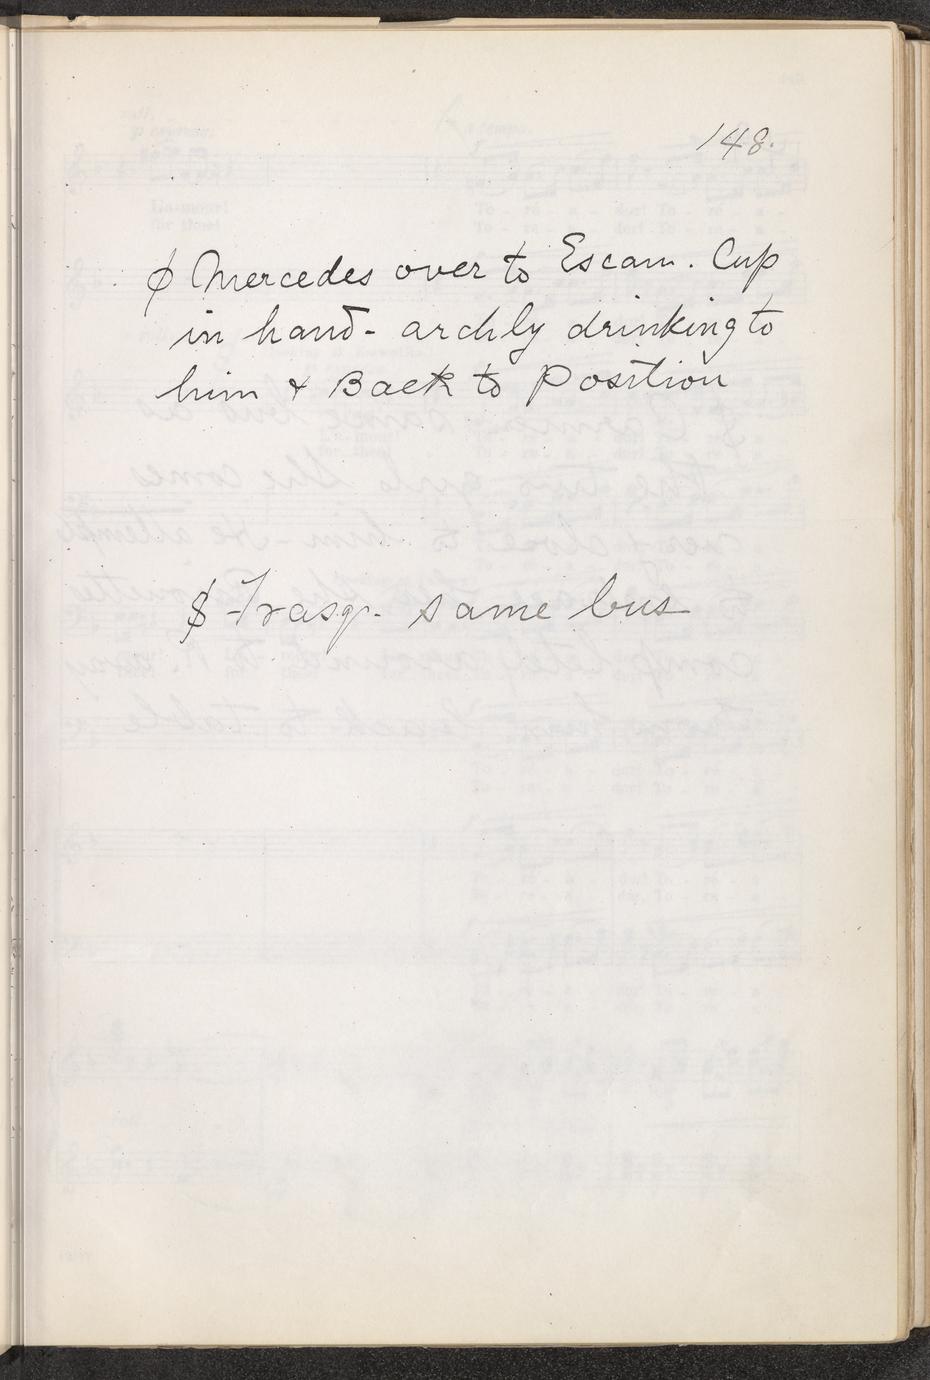 148.
¢ Mercedes over to Escam. Cup
in hand - archly drinking to
him & Back to Position
$ Frasq. same bus